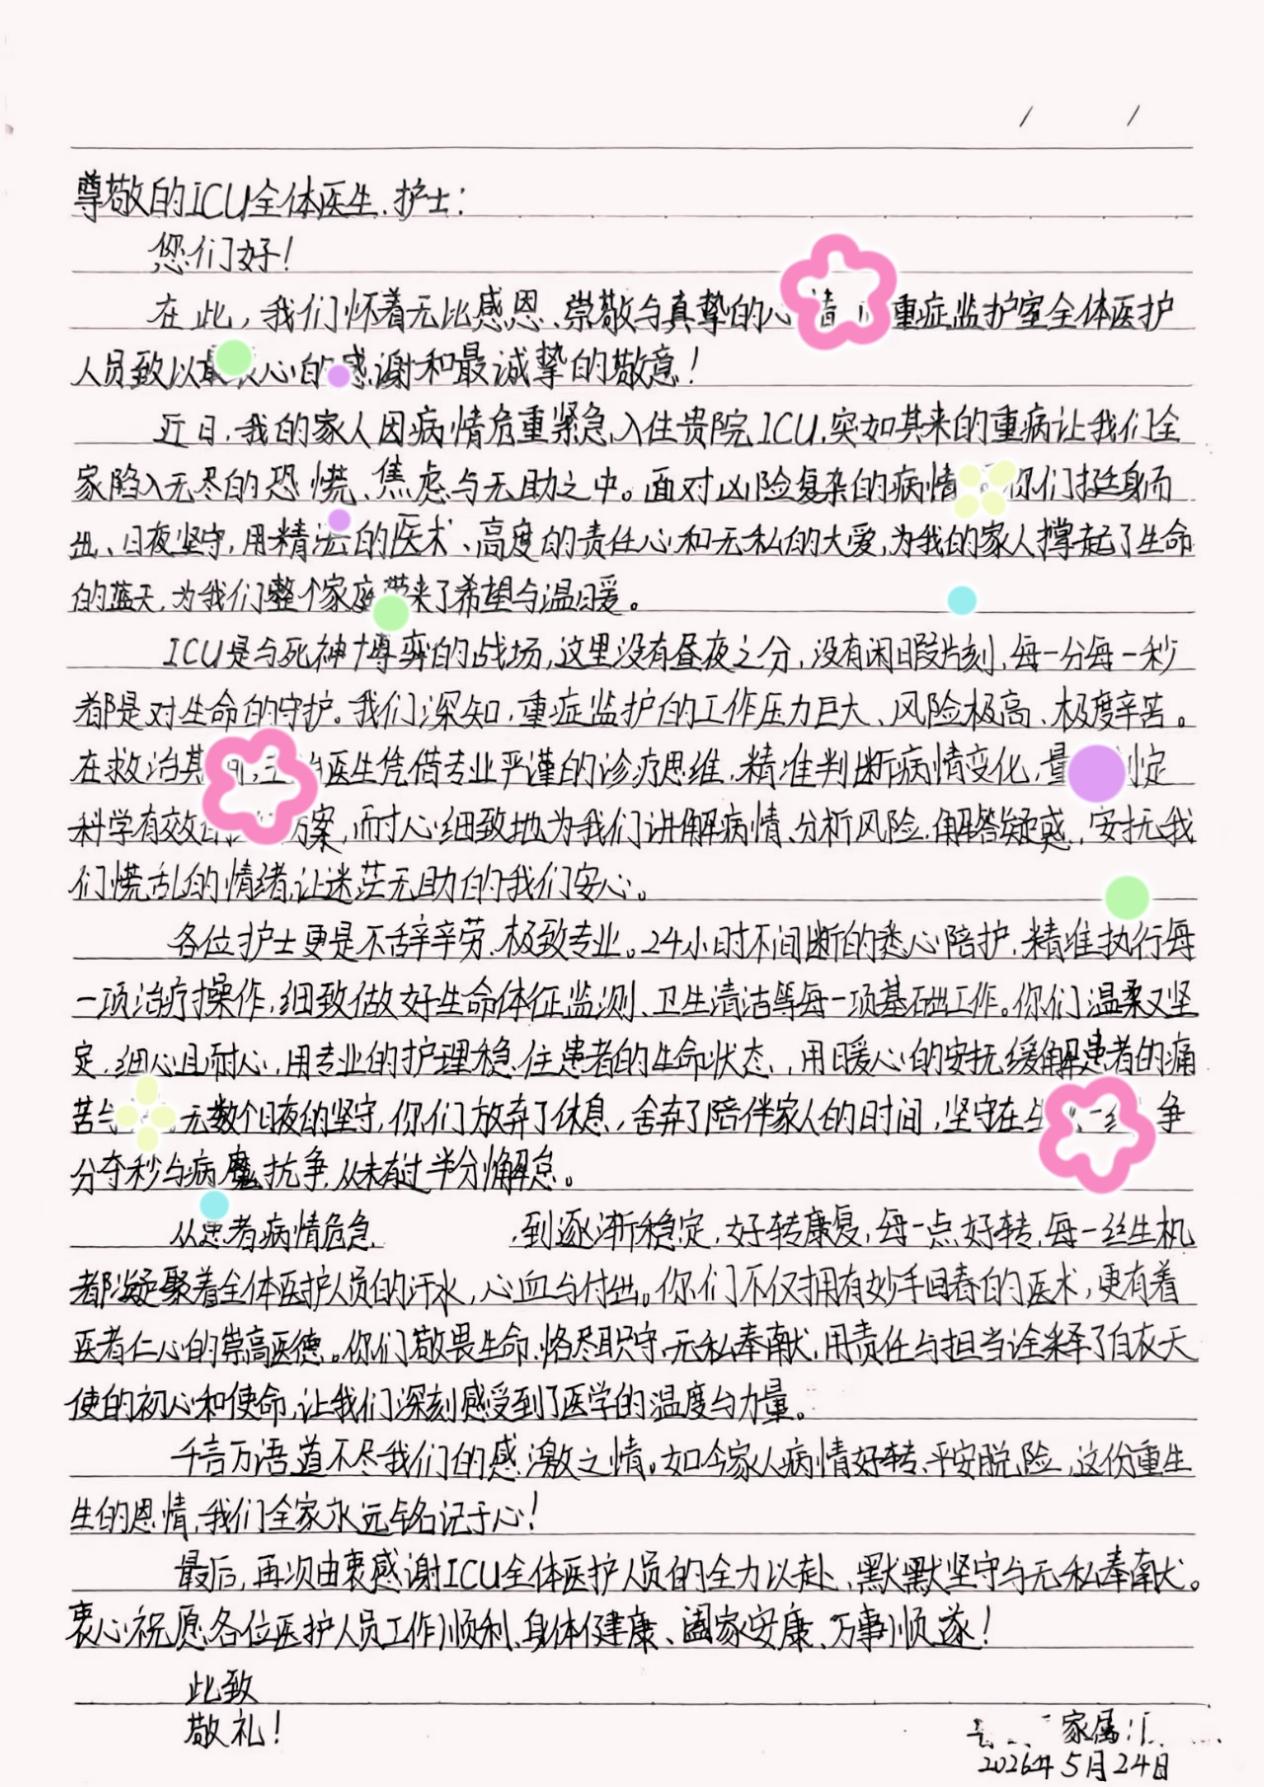 尊敬的ICU全体医生、护士：
您们好！
在此，我们怀着无比感恩、崇敬与真挚的心情 重症监护室全体医护
人员致以最 心的感谢和最诚挚的敬意！
近日，我的家人因病情危重紧急入住贵院ICU，突如其来的重病让我们全
家陷入无尽的恐慌、焦虑与无助之中。面对凶险复杂的病情 你们挺身而
出、日夜坚守，用精 的医术、高度的责任心和无私的大爱，为我的家人撑起了生命
的蓝天，为我们整个家庭带来了希望与温暖。
ICU是与死神博弈的战场，这里没有昼夜之分，没有闲暇片刻，每一分每一秒
都是对生命的守护。我们深知，重症监护的工作压力巨大、风险极高、极度辛苦。
在救治 医生凭借专业严谨的诊疗思维，精准判断病情变化， 制定
科学有效 方案，耐心细致地为我们讲解病情、分析风险、解答疑惑，安抚我
们慌乱的情绪，让迷茫无助的我们安心。
各位护士更是不辞辛劳、极致专业。24小时不间断的悉心陪护，精准执行每
一项治疗操作，细致做好生命体征监测、卫生清洁等每一项基础工作。你们温柔又坚
定，细心且耐心，用专业的护理稳住患者的生命状态，用暖心的安抚缓解患者的痛
苦 无数个日夜的坚守，你们放弃了休息，舍弃了陪伴家人的时间，坚守在 争
分夺秒与病魔抗争，从未有过半分懈怠。
从患者病情危急 ，到逐渐稳定，好转康复，每一点好转，每一丝生机
都凝聚着全体医护人员的汗水，心血与付出。你们不仅拥有妙手回春的医术，更有着
医者仁心的崇高医德。你们敬畏生命、恪尽职守、无私奉献，用责任与担当诠释了白衣天
使的初心和使命，让我们深刻感受到了医学的温度与力量。
千言万语道不尽我们的感激之情。如今家人病情好转、平安脱险，这份重生
生的恩情，我们全家永远铭记于心！
最后，再次由衷感谢ICU全体医护人员的全力以赴、默默坚守与无私奉献。
衷心祝愿各位医护人员工作顺利、身体健康、阖家安康、万事顺遂！
此致
敬礼！
家属：
2026年5月24日